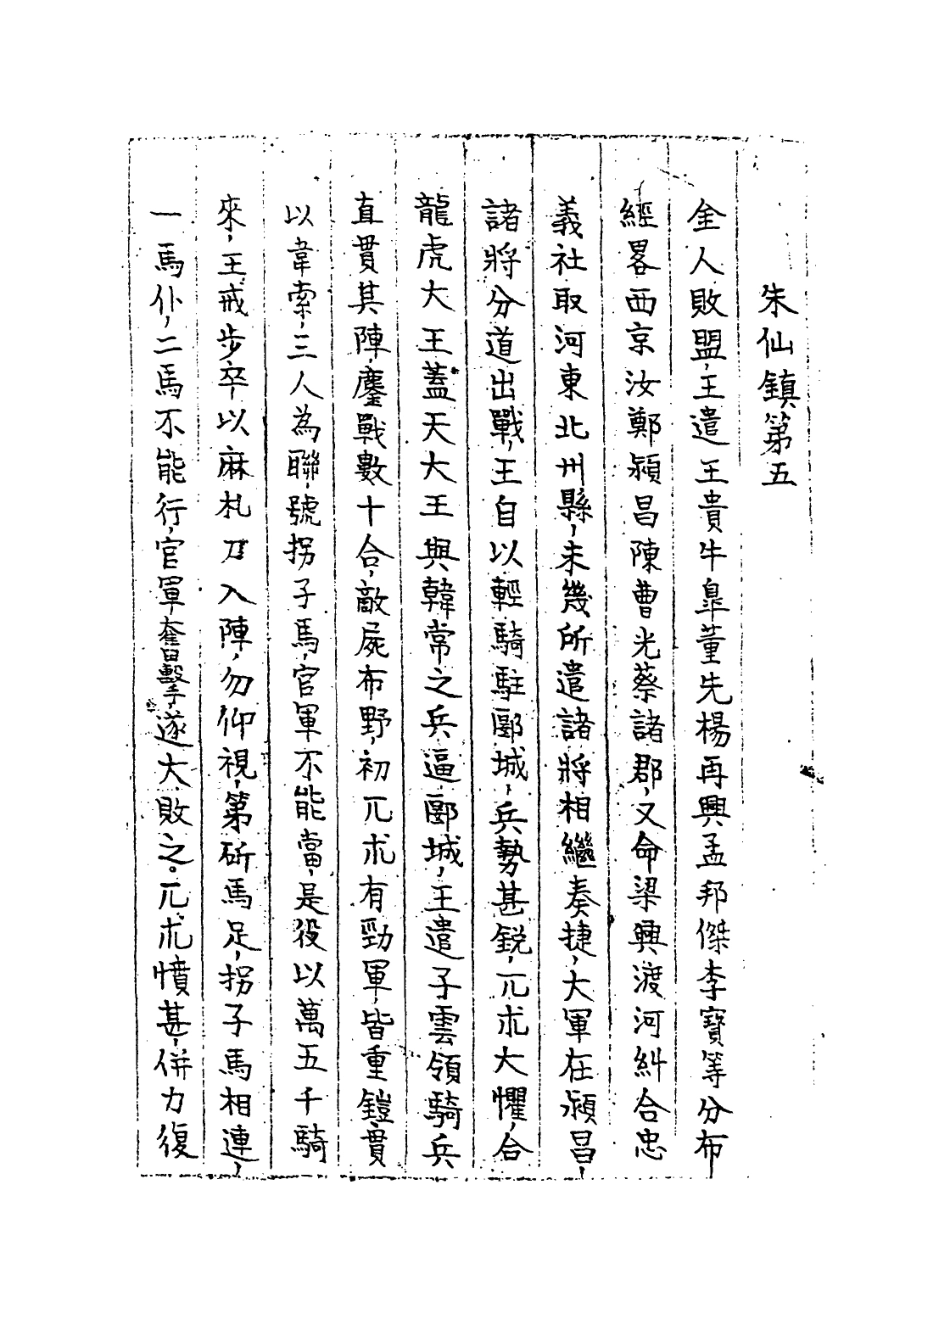 朱仙鎮第五
金人敗盟,王遣王貴牛臯董先楊再興孟邦傑李寶等分布
經畧西京汝鄭潁昌陳曹光蔡諸郡,又命梁興渡河糾合忠
義社取河東北州縣,未幾所遣諸將相繼奏捷,大軍在潁昌,
諸將分道出戰,王自以輕騎駐郾城,兵勢甚銳,兀朮大懼,合
龍虎大王蓋天大王與韓常之兵逼郾城,王遣子雲領騎兵
直貫其陣,鏖戰數十合,敵屍布野,初兀朮有勁軍,皆重鎧,貫
以韋索,三人為聯,號拐子馬,官軍不能當,是役以萬五千騎
來,王戒步卒以麻札刀入陣,勿仰視,第斫馬足,拐子馬相連,
一馬仆,二馬不能行,官軍奮擊,遂大敗之。兀朮憤甚,併力復